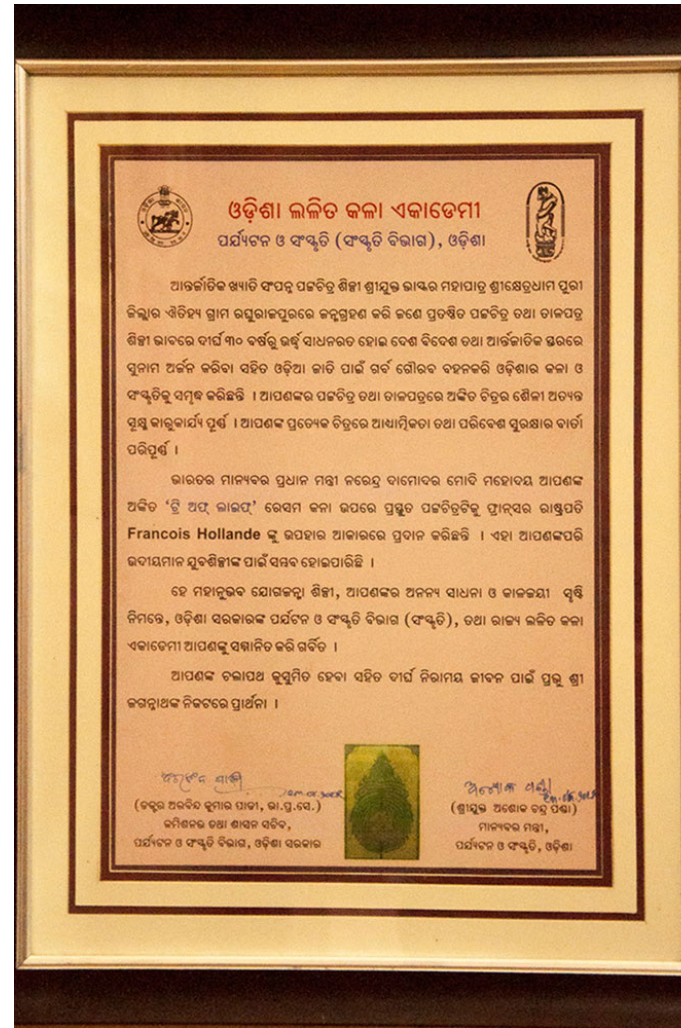 ଓଡ଼ିଶା ଲଳିତ କଳା ଏକାଡେମୀ
ପର୍ଯ୍ୟଟନ ଓ ସଂସ୍କୃତି (ସଂସ୍କୃତି ବିଭାଗ), ଓଡ଼ିଶା
ଆନ୍ତର୍ଜାତିକ ଖ୍ୟାତି ସଂପନ୍ନ ପଟ୍ଟଚିତ୍ର ଶିଳ୍ପୀ ଶ୍ରୀଯୁକ୍ତ ଭାସ୍କର ମହାପାତ୍ର ଶ୍ରୀକ୍ଷେତ୍ରଧାମ ପୁରୀ
ଜିଲ୍ଲାର ଐତିହ୍ୟ ଗ୍ରାମ ରଘୁରାଜପୁରରେ ଜନ୍ମଗ୍ରହଣ କରି ଜଣେ ପ୍ରତିଷ୍ଠିତ ପଟ୍ଟଚିତ୍ର ତଥା ତାଳପତ୍ର
ଶିଳ୍ପୀ ଭାବରେ ଦୀର୍ଘ ୩୦ ବର୍ଷରୁ ଉର୍ଦ୍ଧ୍ୱ ସାଧନରତ ହୋଇ ଦେଶ ବିଦେଶ ତଥା ଆର୍ନ୍ତଜାତିକ ସ୍ତରରେ
ସୁନାମ ଅର୍ଜନ କରିବା ସହିତ ଓଡ଼ିଆ ଜାତି ପାଇଁ ଗର୍ବ ଗୌରବ ବହନକରି ଓଡ଼ିଶାର କଳା ଓ
ସଂସ୍କୃତିକୁ ସମୃଦ୍ଧ କରିଛନ୍ତି । ଆପଣଙ୍କର ପଟ୍ଟଚିତ୍ର ତଥା ତାଳପତ୍ରରେ ଅଙ୍କିତ ଚିତ୍ରର ଶୈଳୀ ଅତ୍ୟନ୍ତ
ସୂକ୍ଷ୍ମ କାରୁକାର୍ଯ୍ୟ ପୂର୍ଣ୍ଣ । ଆପଣଙ୍କ ପ୍ରତ୍ୟେକ ଚିତ୍ରରେ ଆଧ୍ୟାତ୍ମିକତା ତଥା ପରିବେଶ ସୁରକ୍ଷାର ବାର୍ତା
ପରିପୂର୍ଣ୍ଣ ।
ଭାରତର ମାନ୍ୟବର ପ୍ରଧାନ ମନ୍ତ୍ରୀ ନରେନ୍ଦ୍ର ଦାମୋଦର ମୋଦି ମହୋଦୟ ଆପଣଙ୍କ
ଅଙ୍କିତ ‘ଟ୍ରି ଅଫ୍ ଲାଇଫ୍’ ରେସମ କନା ଉପରେ ପ୍ରସ୍ତୁତ ପଟ୍ଟଚିତ୍ରଟିକୁ ଫ୍ରାନ୍ସର ରାଷ୍ଟ୍ରପତି
Francois Hollande ଙ୍କୁ ଉପହାର ଆକାରରେ ପ୍ରଦାନ କରିଛନ୍ତି । ଏହା ଆପଣଙ୍କପରି
ଉଦୀୟମାନ ଯୁବଶିଳ୍ପୀଙ୍କ ପାଇଁ ସମ୍ଭବ ହୋଇପାରିଛି ।
ହେ ମହାନୁଭବ ଯୋଗଜନ୍ମା ଶିଳ୍ପୀ, ଆପଣଙ୍କର ଅନନ୍ୟ ସାଧନା ଓ କାଳଜୟୀ ସୃଷ୍ଟି
ନିମନ୍ତେ, ଓଡ଼ିଶା ସରକାରଙ୍କ ପର୍ଯଟନ ଓ ସଂସ୍କୃତି ବିଭାଗ (ସଂସ୍କୃତି), ତଥା ରାଜ୍ୟ ଲଳିତ କଳା
ଏକାଡେମୀ ଆପଣଙ୍କୁ ସମ୍ମାନିତ କରି ଗର୍ବିତ ।
ଆପଣଙ୍କ ଚଲାପଥ କୁସୁମିତ ହେବା ସହିତ ଦୀର୍ଘ ନିରାମୟ ଜୀବନ ପାଇଁ ପ୍ରଭୁ ଶ୍ରୀ
ଜଗନ୍ନାଥଙ୍କ ନିକଟରେ ପ୍ରାର୍ଥନା ।
(ଡକ୍ଟର ଅରବିନ୍ଦ କୁମାର ପାଢୀ, ଭା.ପ୍ର.ସେ.)
କମିଶନର ତଥା ଶାସନ ସଚିବ,
ପର୍ଯ୍ୟଟନ ଓ ସଂସ୍କୃତି ବିଭାଗ, ଓଡ଼ିଶା ସରକାର
(ଶ୍ରୀଯୁକ୍ତ ଅଶୋକ ଚନ୍ଦ୍ର ପଣ୍ଡା)
ମାନ୍ୟବର ମନ୍ତ୍ରୀ,
ପର୍ଯ୍ୟଟନ ଓ ସଂସ୍କୃତି, ଓଡ଼ିଶା